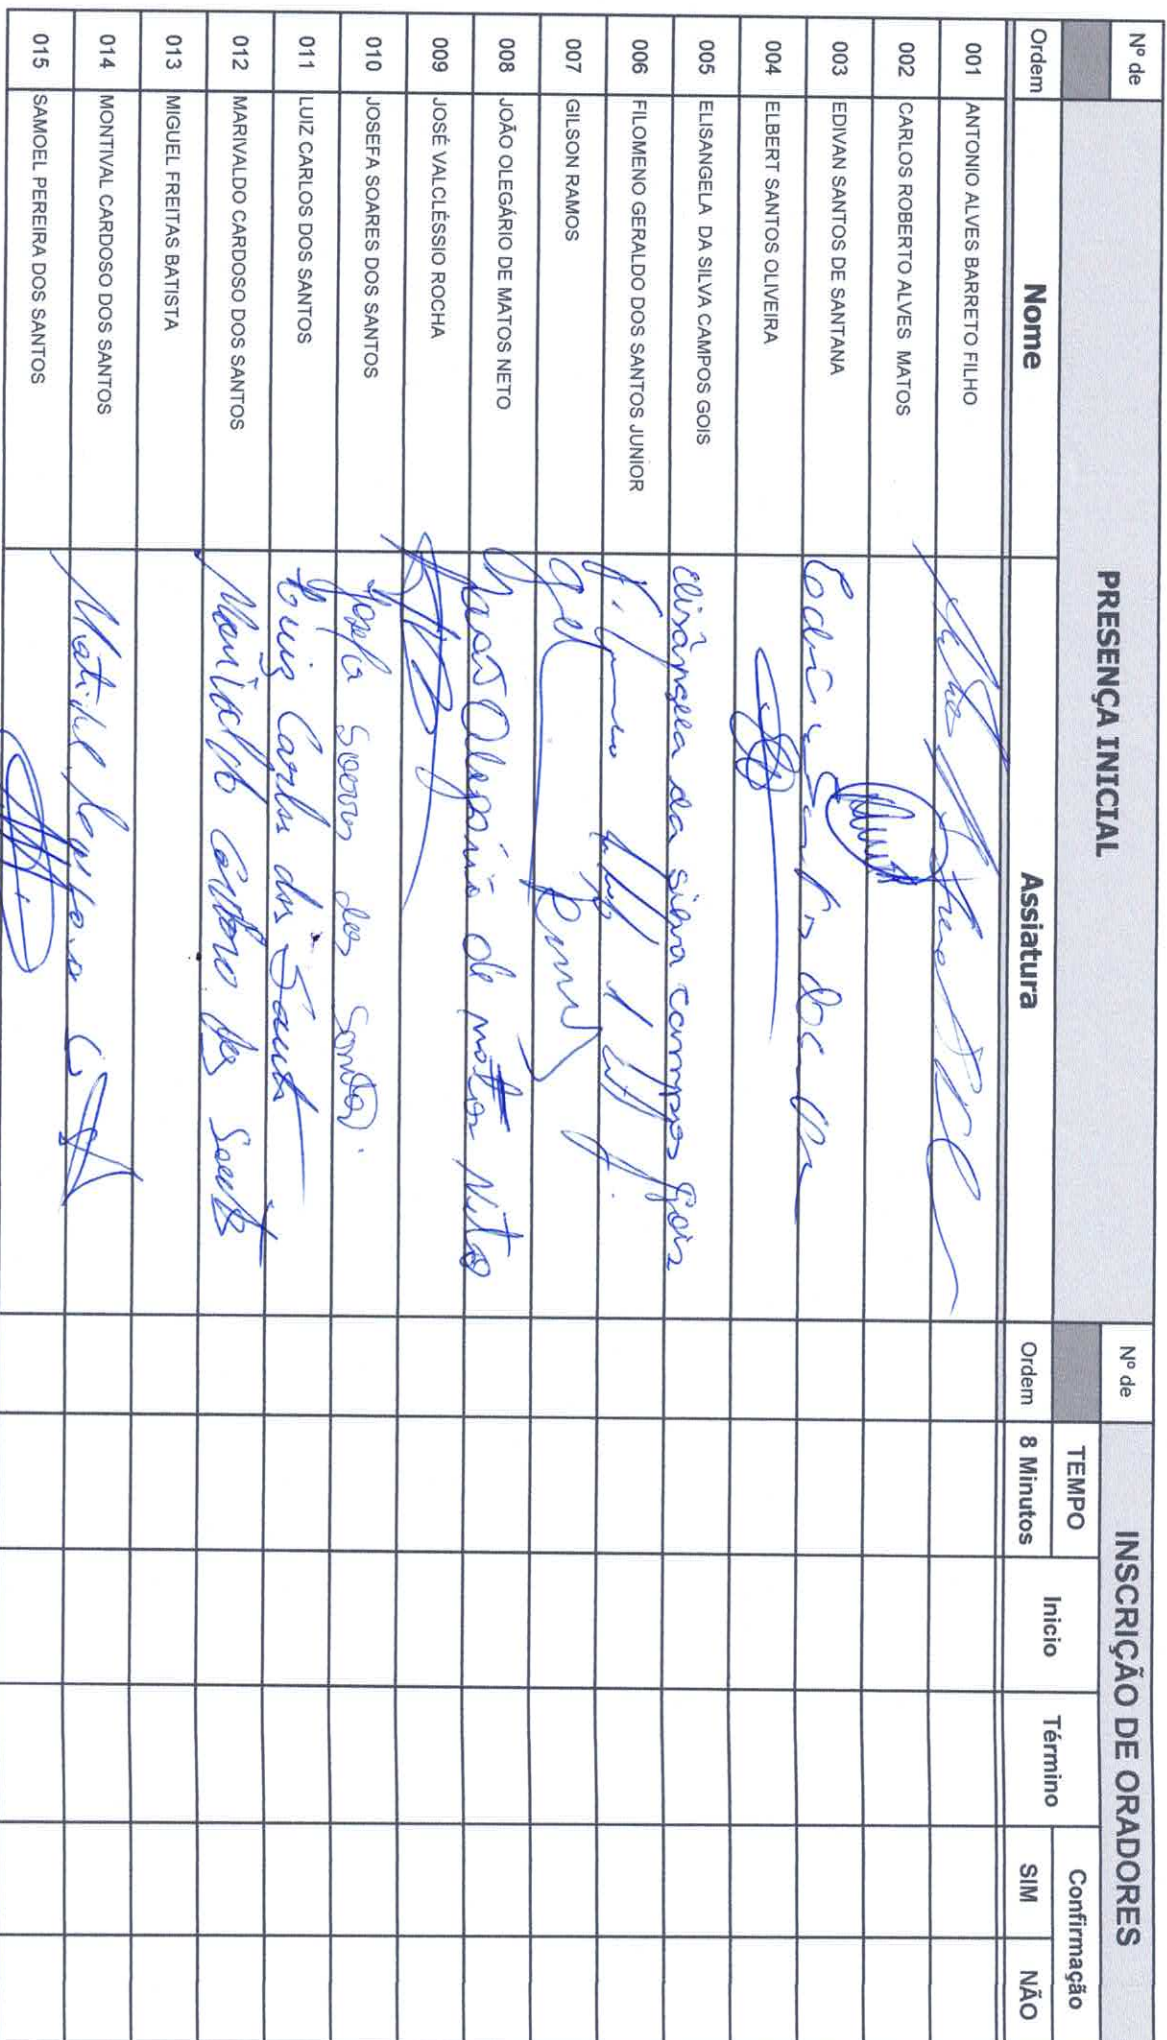 Nº de
PRESENÇA INICIAL
Nº de
INSCRIÇÃO DE ORADORES
TEMPO
Confirmação
Ordem
Nome
Assiatura
Ordem
8 Minutos
Inicio
Término
SIM
NÃO
001 ANTONIO ALVES BARRETO FILHO
002 CARLOS ROBERTO ALVES MATOS
003 EDIVAN SANTOS DE SANTANA
004 ELBERT SANTOS OLIVEIRA
005 ELISANGELA DA SILVA CAMPOS GOIS Elisângela da silva campos Gois
006 FILOMENO GERALDO DOS SANTOS JUNIOR
007 GILSON RAMOS
008 JOÃO OLEGÁRIO DE MATOS NETO João Olegário de matos Neto
009 JOSÉ VALCLÉSSIO ROCHA
010 JOSEFA SOARES DOS SANTOS Josefa Soares dos Santos.
011 LUIZ CARLOS DOS SANTOS Luiz Carlos dos Santos
012 MARIVALDO CARDOSO DOS SANTOS Marivaldo Cardoso dos Santos
013 MIGUEL FREITAS BATISTA
014 MONTIVAL CARDOSO DOS SANTOS
015 SAMOEL PEREIRA DOS SANTOS